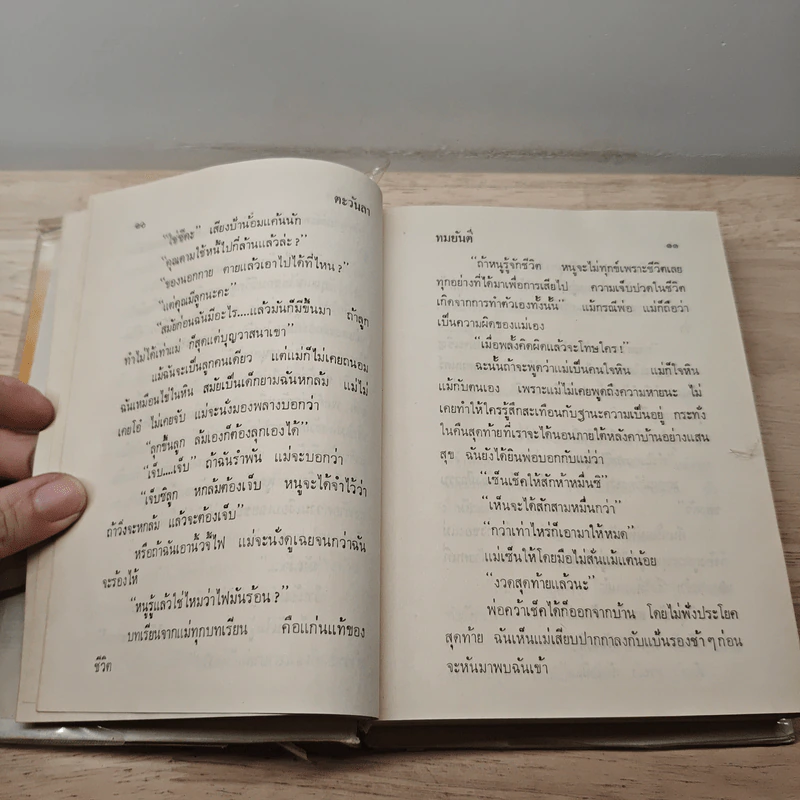 ๑๐ ตะวันลา
"ใช่ซีคะ" เสียงป้านอมแค้นนัก
"คุณตามใช้หนี้ไปกี่ล้านแล้วล่ะ?"
"ของนอกกาย ตายแล้วเอาไปได้ที่ไหน?"
"แต่คุณมีลูกนะคะ"
"สมัยก่อนฉันมีอะไร....แล้วมันก็มีขึ้นมา ถ้าลูก
ทำไม่ได้เท่าแม่ ก็สุดแต่บุญวาสนาเขา"
แม้ฉันจะเป็นลูกคนเดียว แต่แม่ก็ไม่เคยถนอม
ฉันเหมือนไข่ในหิน สมัยเป็นเด็กยามฉันหกล้ม แม่ไม่
เคยโอ๋ ไม่เคยจับ แม่จะนั่งมองพลางบอกว่า
"ลุกขึ้นลูก ล้มเองก็ต้องลุกเองได้"
"เจ็บ....เจ็บ" ถ้าฉันรำพัน แม่จะบอกว่า
"เจ็บซิลูก หกล้มต้องเจ็บ หนูจะได้จำไว้ว่า
ถ้าวิ่งจะหกล้ม แล้วจะต้องเจ็บ"
หรือถ้าฉันเอานิ้วจี้ไฟ แม่จะนั่งดูเฉยจนกว่าฉัน
จะร้องไห้
"หนูรู้แล้วใช่ไหมว่าไฟมันร้อน?"
บทเรียนจากแม่ทุกบทเรียน คือแก่นแท้ของ
ชีวิต
ทมยันตี ๑๑
"ถ้าหนูรู้จักชีวิต หนูจะไม่ทุกข์เพราะชีวิตเลย
ทุกอย่างที่ได้มาเพื่อการเสียไป ความเจ็บปวดในชีวิต
เกิดจากการทำตัวเองทั้งนั้น" แม้กรณีพ่อ แม่ก็ถือว่า
เป็นความผิดของแม่เอง
"เมื่อพลั้งคิดผิดแล้วจะโทษใคร!"
ฉะนั้นถ้าจะพูดว่าแม่เป็นคนใจหิน แม่ก็ใจหิน
แม้กับตนเอง เพราะแม่ไม่เคยพูดถึงความหายนะ ไม่
เคยทำให้ใครรู้สึกสะเทือนกับฐานะความเป็นอยู่ กระทั่ง
ในคืนสุดท้ายที่เราจะได้นอนภายใต้หลังคาบ้านอย่างแสน
สุข ฉันยังได้ยินพ่อบอกกับแม่ว่า
"เซ็นเช็คให้สักห้าหมื่นซิ"
"เห็นจะได้สักสามหมื่นกว่า"
"กว่าเท่าไหร่ก็เอามาให้หมด"
แม่เซ็นให้โดยมือไม่สั่นแม้แต่น้อย
"งวดสุดท้ายแล้วนะ"
พ่อคว้าเช็คได้ก็ออกจากบ้าน โดยไม่ฟังประโยค
สุดท้าย ฉันเห็นแม่เสียบปากกาลงกับแป้นรองช้า ๆ ก่อน
จะหันมาพบฉันเข้า